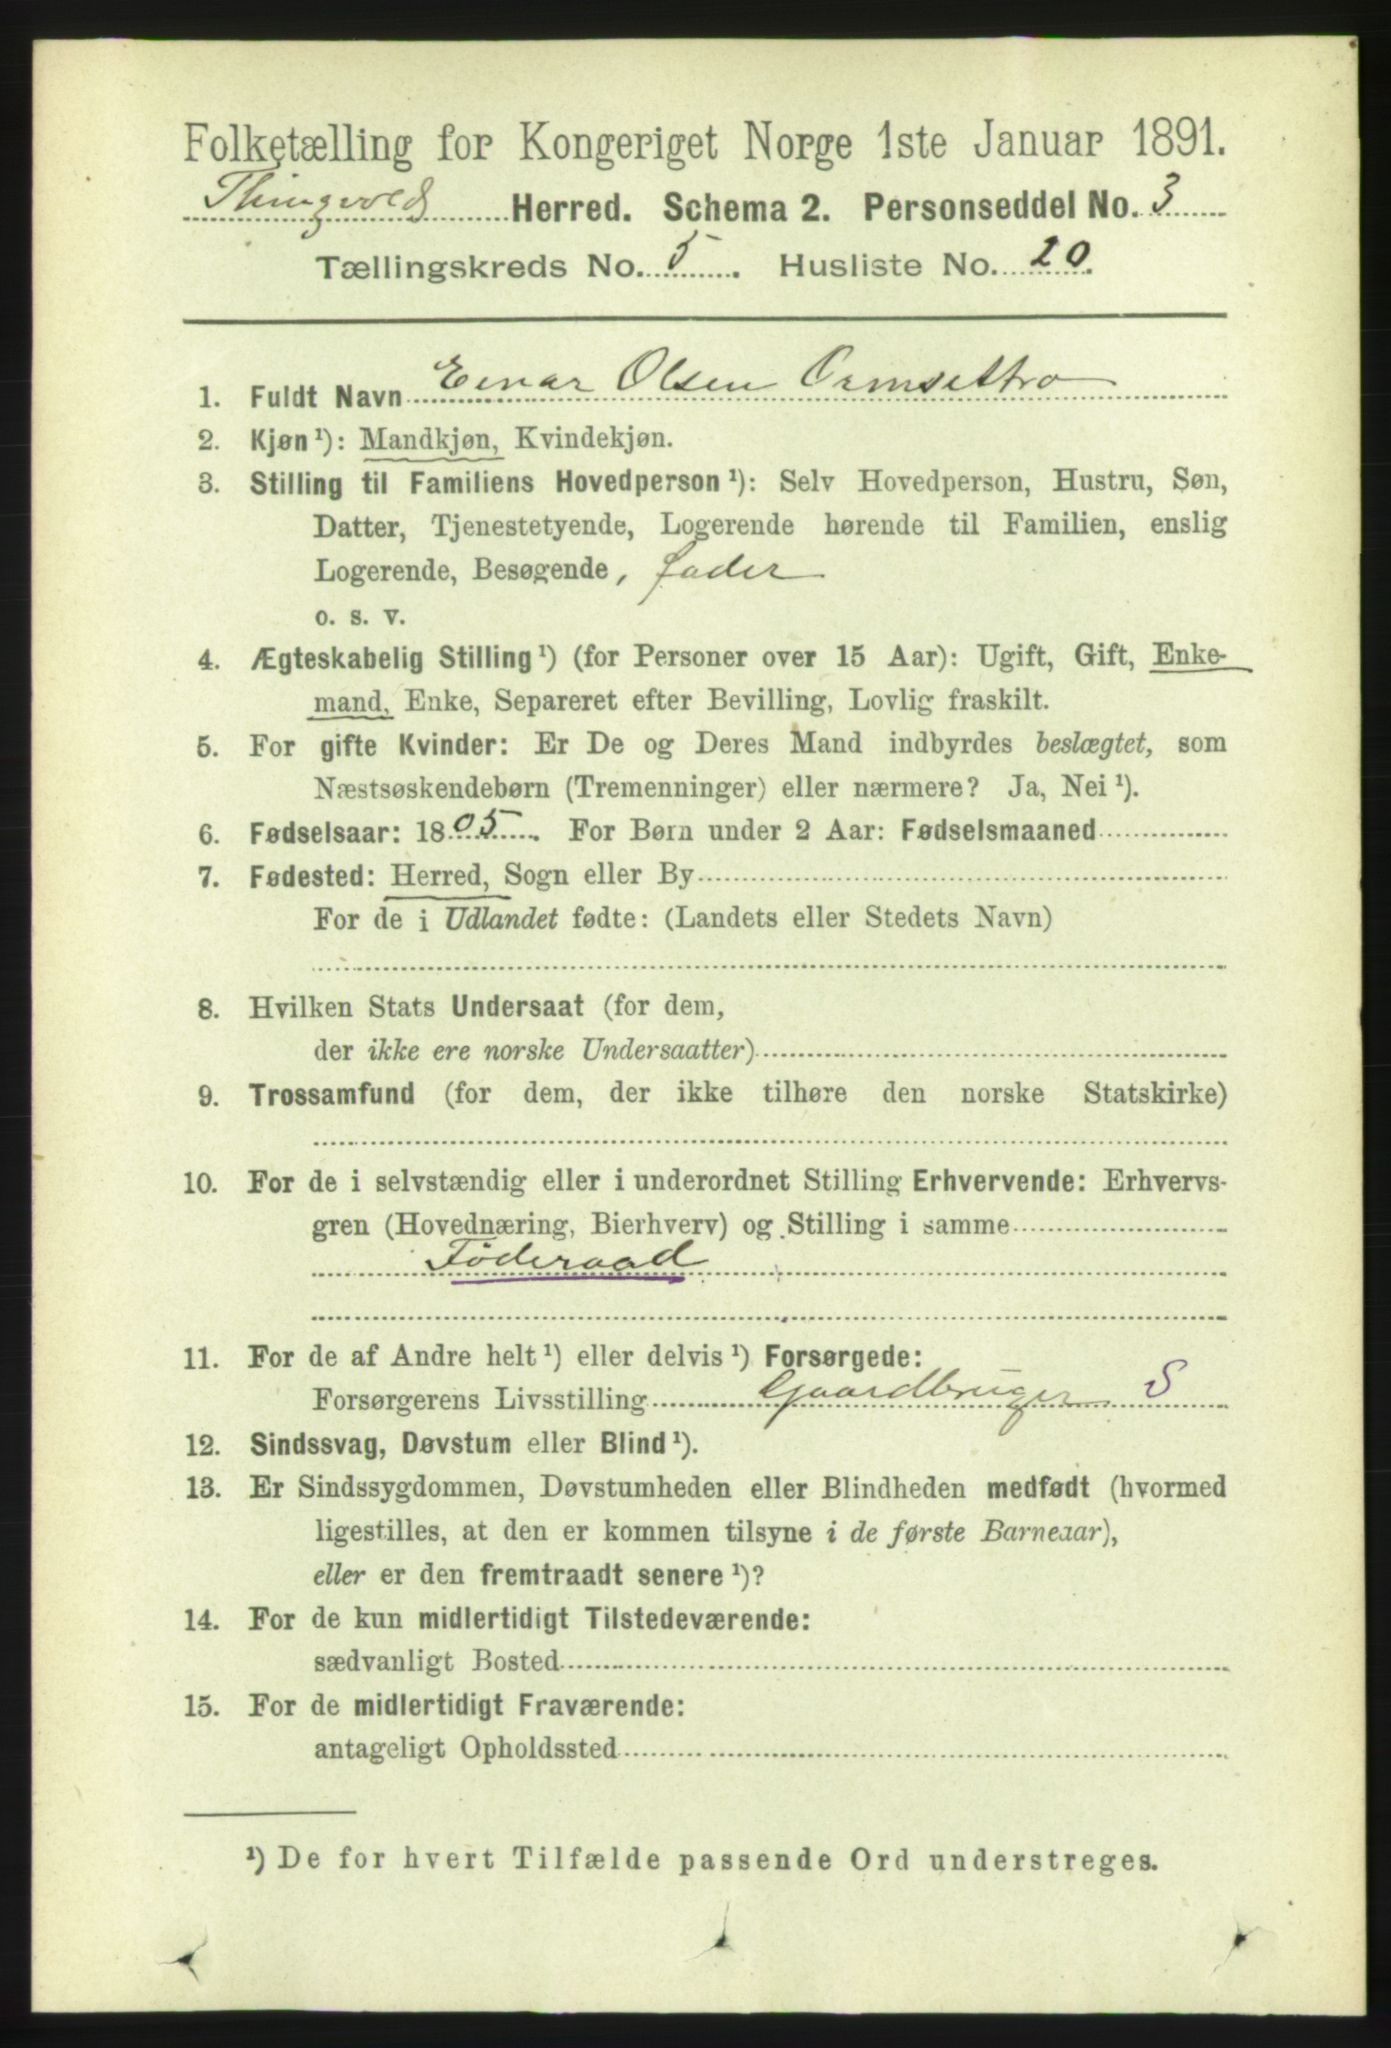 Folketælling for Kongeriget Norge 1ste Januar 1891.
Thingvolds Herred. Schema 2. Personseddel No. 3
Tællingskreds No. 5. Husliste No. 20.
1. Fuldt Navn Einar Olsen Ormsettrø
2. Kjøn¹): Mandkjøn, Kvindekjøn.
3. Stilling til Familiens Hovedperson¹): Selv Hovedperson, Hustru, Søn,
Datter, Tjenestetyende, Logerende hørende til Familien, enslig
Logerende, Besøgende, fader
o. s. v.
4. Ægteskabelig Stilling¹) (for Personer over 15 Aar): Ugift, Gift, Enke-
mand, Enke, Separeret efter Bevilling, Lovlig fraskilt.
5. For gifte Kvinder: Er De og Deres Mand indbyrdes beslægtet, som
Næstsøskendebørn (Tremenninger) eller nærmere? Ja, Nei¹).
6. Fødselsaar: 1805. For Børn under 2 Aar: Fødselsmaaned
7. Fødested: Herred, Sogn eller By
For de i Udlandet fødte: (Landets eller Stedets Navn)
8. Hvilken Stats Undersaat (for dem,
der ikke ere norske Undersaatter)
9. Trossamfund (for dem, der ikke tilhøre den norske Statskirke)
10. For de i selvstændig eller i underordnet Stilling Erhvervende: Erhvervs-
gren (Hovednæring, Bierhverv) og Stilling i samme
Föderaad
11. For de af Andre helt¹) eller delvis¹) Forsørgede:
Forsørgerens Livsstilling Gaardbruger S
12. Sindssvag, Døvstum eller Blind¹).
13. Er Sindssygdommen, Døvstumheden eller Blindheden medfødt (hvormed
ligestilles, at den er kommen tilsyne i de første Barneaar),
eller er den fremtraadt senere¹)?
14. For de kun midlertidigt Tilstedeværende:
sædvanligt Bosted
15. For de midlertidigt Fraværende:
antageligt Opholdssted
¹) De for hvert Tilfælde passende Ord understreges.